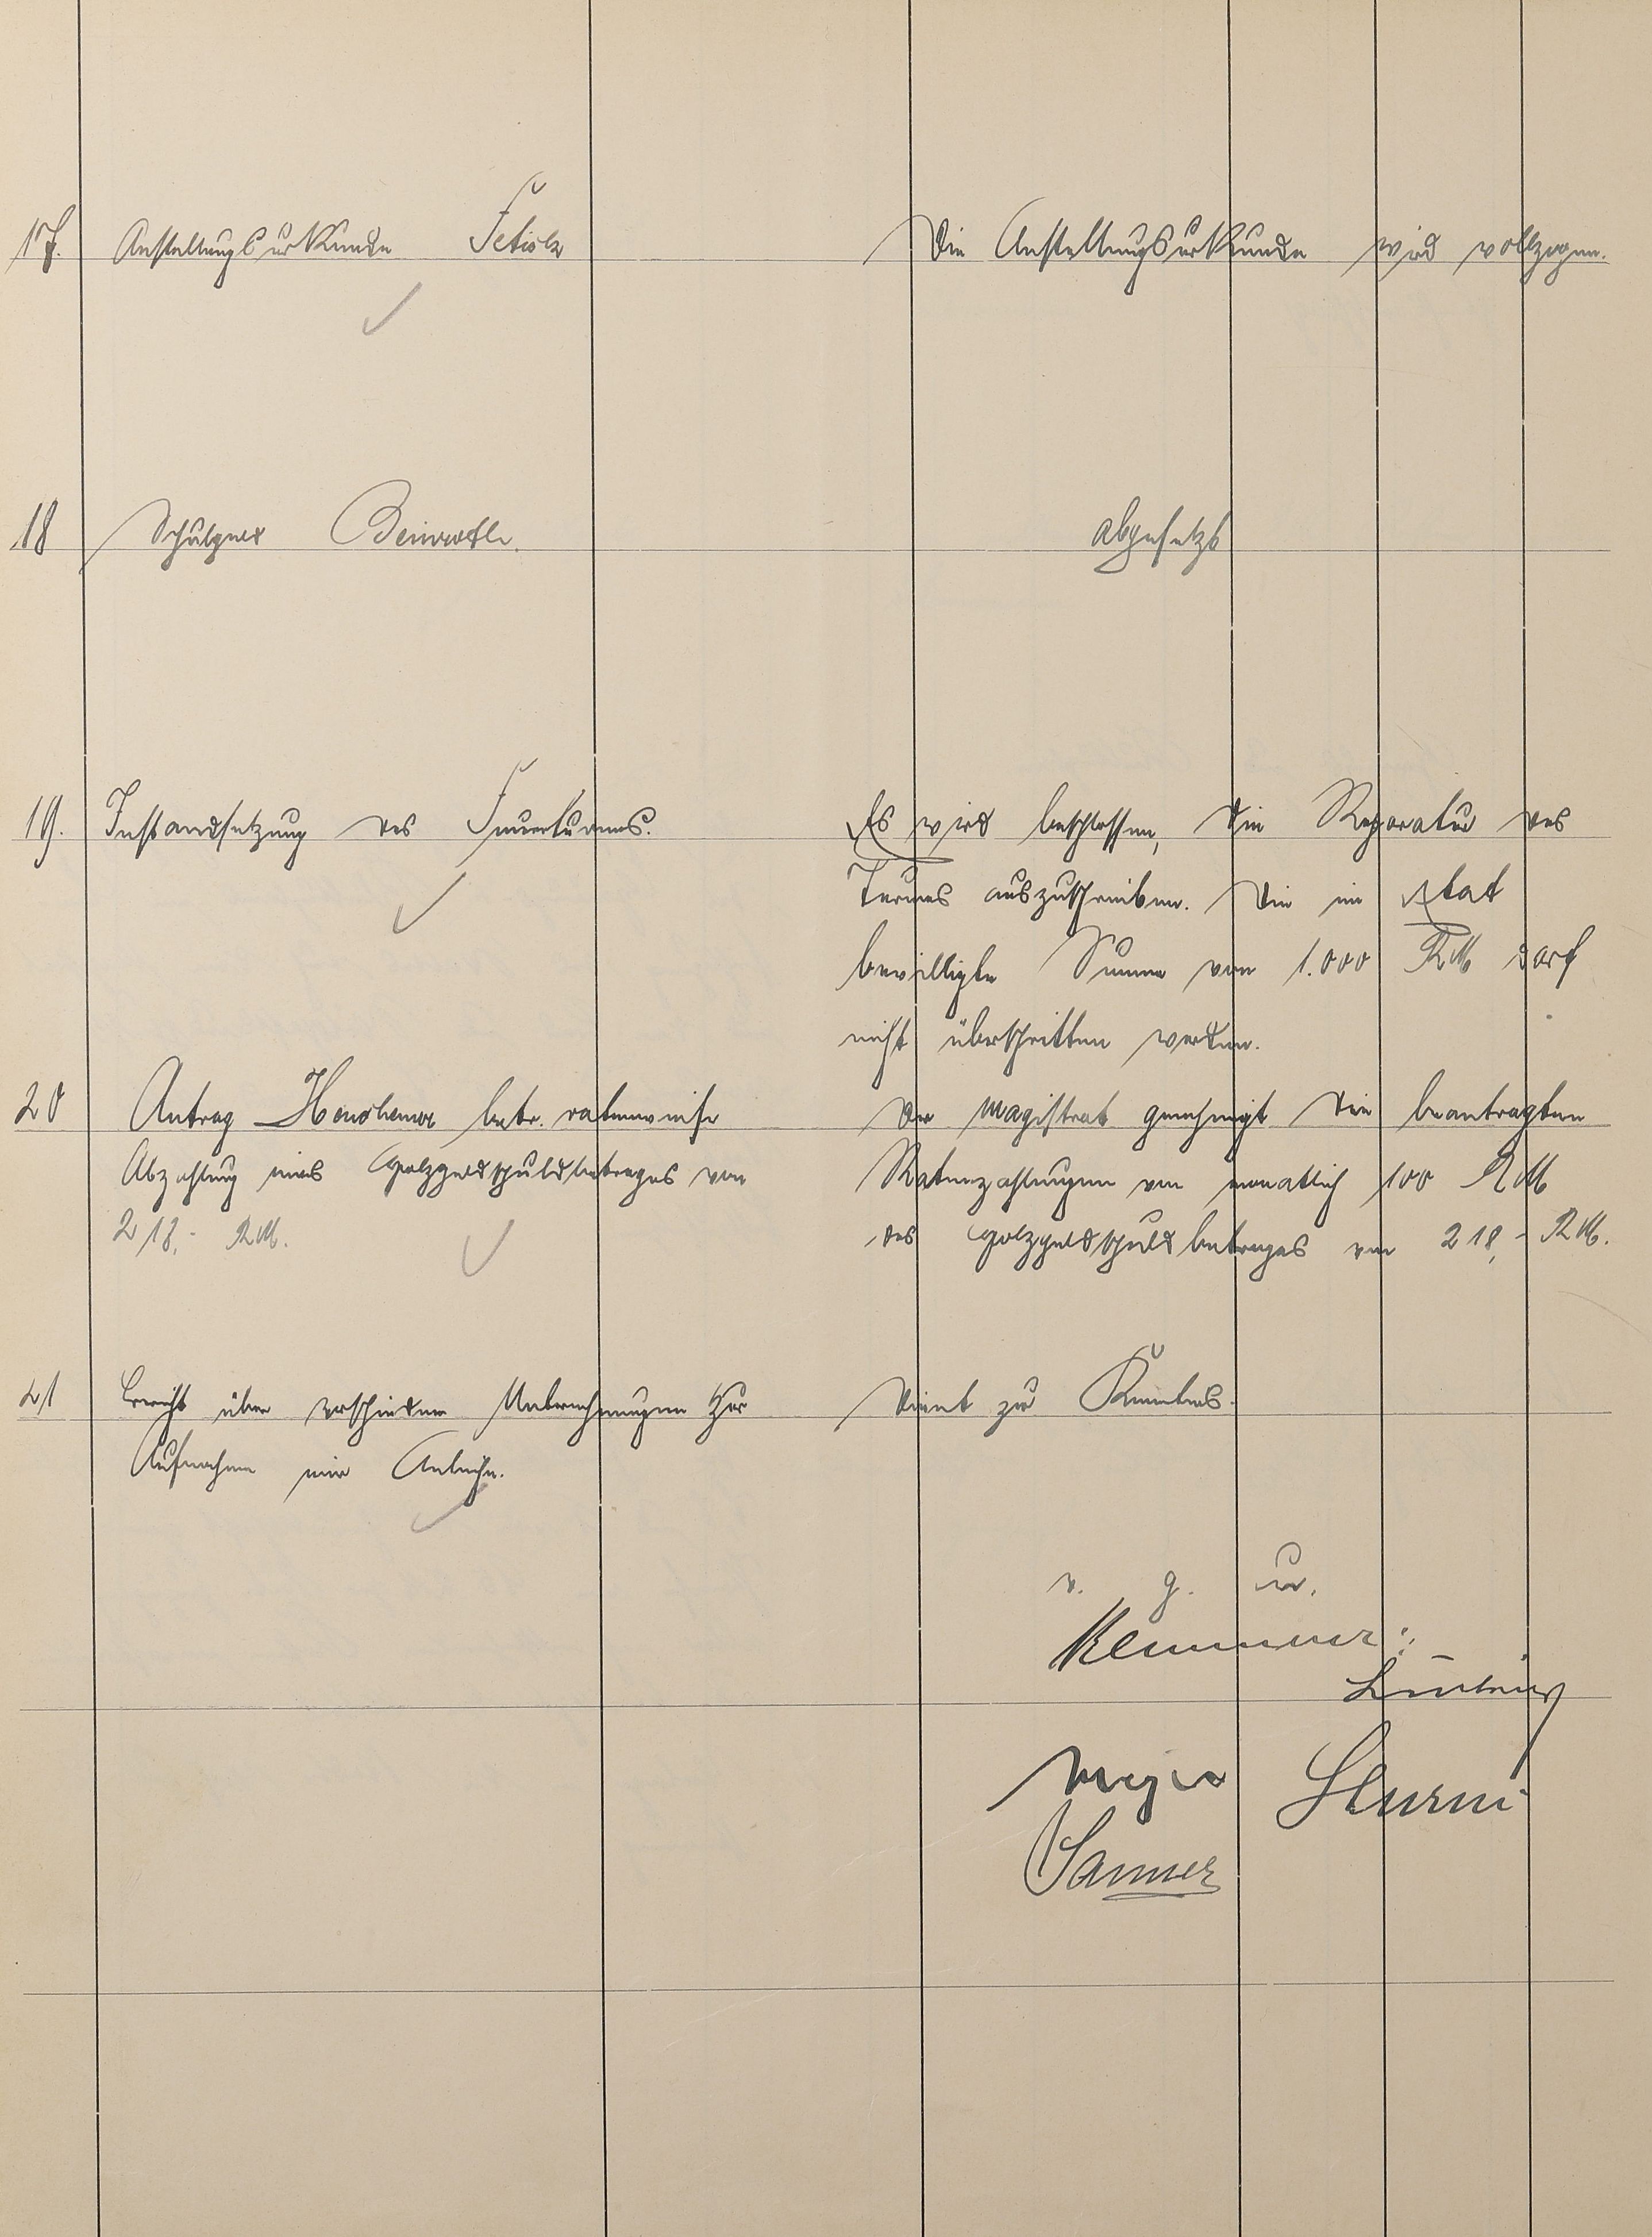 17. Anstellungsurkunde
Die Anstellungsurkunde wird vollzogen.
18 Schulgeld
abgesetzt
19. Instandsetzung des Feuerturmes.
Es wird beschlossen, die Reparatur des
Turmes auszuschreiben. Die im Etat
bewilligte Summe von 1.000 RM darf
nicht überschritten werden.
20 Antrag betr. ratenweise
Abzahlung eines Holzgeldschuldbetrages von
218,- RM.
Der Magistrat genehmigt die beantragten
Ratenzahlungen von monatlich 100 RM
des Holzgeldschuldbetrages von 218,- RM.
21 Bericht über verschiedene Unternehmungen zur
Aufnahme einer Anleihe.
Dient zur Kenntnis.
v. g. u.
Meyer Sturm
Sanner